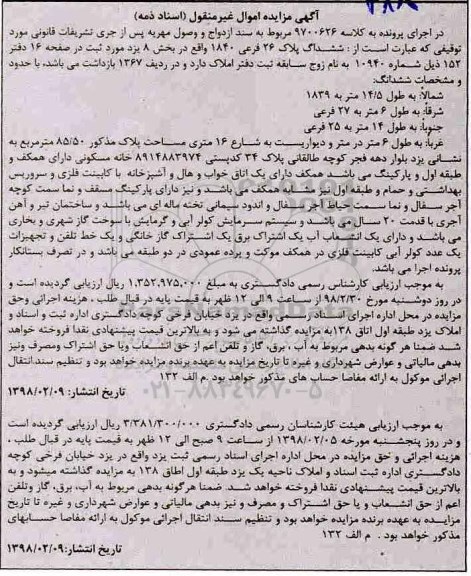 آگهی مزایده اموال غیرمنقول (اسناد ذمه)
در اجرای پرونده به کلاسه ۹۷۰۰۶۲۶ مربوط به سند ازدواج و وصول مهریه پس از جری تشریفات قانونی مورد
توقیفی که عبارت است از : ششدانگ پلاک ۲۶ فرعی ۱۸۴۰ واقع در بخش ۸ یزد مورد ثبت در صفحه ۱۶ دفتر
۱۵۲ ذیل شماره ۱۰۹۴۰ به نام زوج سابقه ثبت دفتر املاک دارد و در ردیف ۱۳۶۷ بازداشت می باشد، با حدود
و مشخصات ششدانگ:
شمالاً: به طول ۱۴/۵ متر به ۱۸۳۹
شرقاً: به طول ۶ متر به ۲۷ فرعی
جنوباً: به طول ۱۴ متر به ۲۵ فرعی
غرباً: به طول ۶ متر در متر و دیواریست به شارع ۱۶ متری مساحت پلاک مذکور ۸۵/۵۰ مترمربع به
نشانی یزد بلوار دهه فجر کوچه طالقانی پلاک ۳۴ کدپستی ۸۹۱۴۸۸۳۹۷۴ خانه مسکونی دارای همکف و
طبقه اول و پارکینگ می باشد همکف دارای یک اتاق خواب و هال و آشپزخانه با کابینت فلزی و سرویس
بهداشتی و حمام و طبقه اول همچون همکف می باشد و نیز دارای پارکینگ مسقف و نما سمت کوچه
آجر سفال و نما سمت حیاط آجر سفال و اندود سیمانی تخته ماله ای می باشد و ساختمان تیر و آهن
آجری با قدمت ۲۰ سال می باشد و سیستم سرمایش کولر آبی و گرمایش با سوخت گاز شهری و بخاری
می باشند و دارای یک انشعاب آب یک اشتراک برق یک اشتراک گاز خانگی و یک خط تلفن و تجهیزات
یک عدد کولر آبی کابینت فلزی در همکف موکت و پرده عمودی در دو طبقه می باشد و در تصرف بستانکار
پرونده اجرا می باشد.
به موجب ارزیابی کارشناس رسمی دادگستری به مبلغ ۱,۳۵۲,۹۷۵,۰۰۰ ریال ارزیابی گردیده است و
در روز دوشنبه مورخ ۹۸/۲/۳۰ از ساعت ۹ الی ۱۲ ظهر به قیمت پایه در قبال طلب ، هزینه اجرائی وحق
مزایده در محل اداره اجرای اسناد رسمی ثبت یزد واقع در یزد خیابان فرخی کوچه دادگستری اداره ثبت و اسناد و
املاک یزد طبقه اول اتاق ۱۳۸به مزایده گذاشته می شود و به بالاترین قیمت پیشنهادی نقدا فروخته خواهد
شد ضمنا هر گونه بدهی مربوط به آب ، برق، گاز و تلفن اعم از حق انشعاب ویا حق اشتراک ومصرف ونیز
بدهی مالیاتی و عوارض شهرداری و غیره تا تاریخ مزایده به عهده برنده مزایده خواهد بود و تنظیم سند انتقال
اجرائی موکول به ارائه مفاصا حساب های مذکور خواهد بود .م الف ۱۳۲
تاریخ انتشار: ۱۳۹۸/۰۲/۰۹
۰۲۱-۸۸۳۴۹۶۷۰-۵
به موجب ارزیابی هیئت کارشناسان رسمی دادگستری ۳/۳۸۱/۳۰۰/۰۰۰ ریال ارزیابی گردیده است
و در روز پنجشنبه مورخه ۱۳۹۸/۰۲/۰۵ از ساعت ۹ صبح الی ۱۲ ظهر به قیمت پایه در قبال طلب ،
هزینه اجرائی و حق مزایده در محل اداره اجرای اسناد رسمی ثبت یزد واقع در یزد خیابان فرخی کوچه
دادگستری اداره ثبت اسناد و املاک ناحیه یک یزد طبقه اول اطاق ۱۳۸ به مزایده گذاشته میشود و به
بالاترین قیمت پیشنهادی نقدا فروخته خواهد شد. ضمنا هرگونه بدهی مربوط به آب، برق، گاز وتلفن
اعم از حق انشعاب و یا حق اشتراک و مصرف و نیز بدهی مالیاتی و عوارض شهرداری و غیره تا تاریخ
مزایده به عهده برنده مزایده خواهد بود و تنظیم سند انتقال اجرائی موکول به ارائه مفاصا حسابهای
مذکور خواهد بود . م الف ۱۳۲
تاریخ انتشار: ۱۳۹۸/۰۲/۰۹